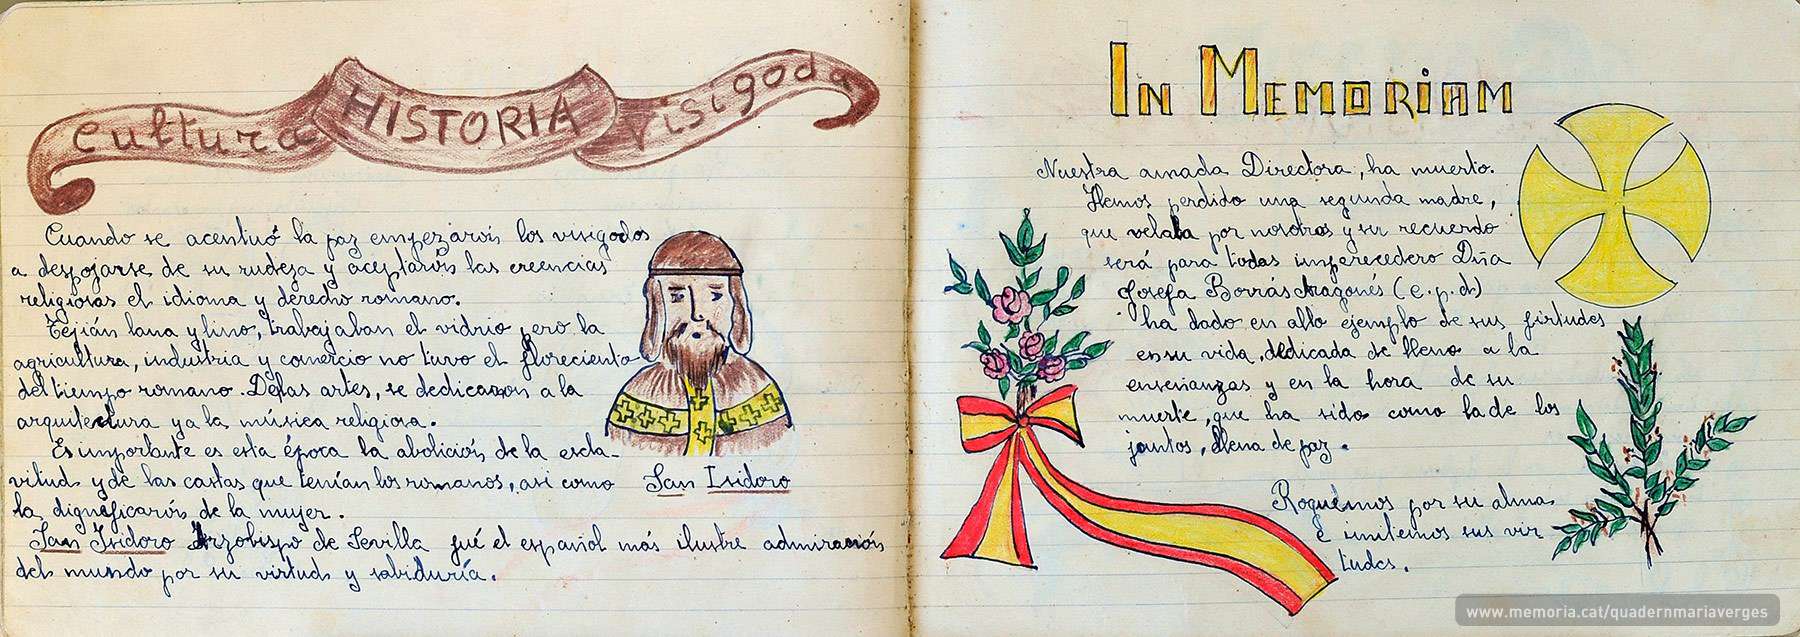 Cultura HISTORIA Visigoda
Cuando se acentuó la paz empezarón los visigodos
a despojarse de su rudeza y aceptarón las creencias
religiosas el idioma y derecho romano.
Tejián lana y lino, trabajaban el vidrio pero la
agricultura, industria y comercio no tuvo el floreciento
del tiempo romano. De las artes, se dedicaron a la
arquitectura y a la música religiosa.
Es importante es esta época la abolición de la escla-
vitud y de las castas que tenían los romanos, asi como
la dignificarón de la mujer.
San Isidoro Arzobispo de Sevilla fué el español más ilustre admiración
del mundo por su virtud y sabiduría.
San Isidoro
IN MEMORIAM
Nuestra amada Directora, ha muerto.
Hemos perdido una segunda madre,
que velaba por nosotras y su recuerdo
será para todas imperecedero Dña
Josefa Borrás Aragonés (e.p.d.)
ha dado en alto ejemplo de sus firtudes
en su vida, dedicada de lleno a la
enseñanzas y en la hora de su
muerte, que ha sido como la de los
jantos, llena de paz.
Roguemos por su alma
E imitemos sus vir
tudes.
www.memoria.cat/quadernmariaverges